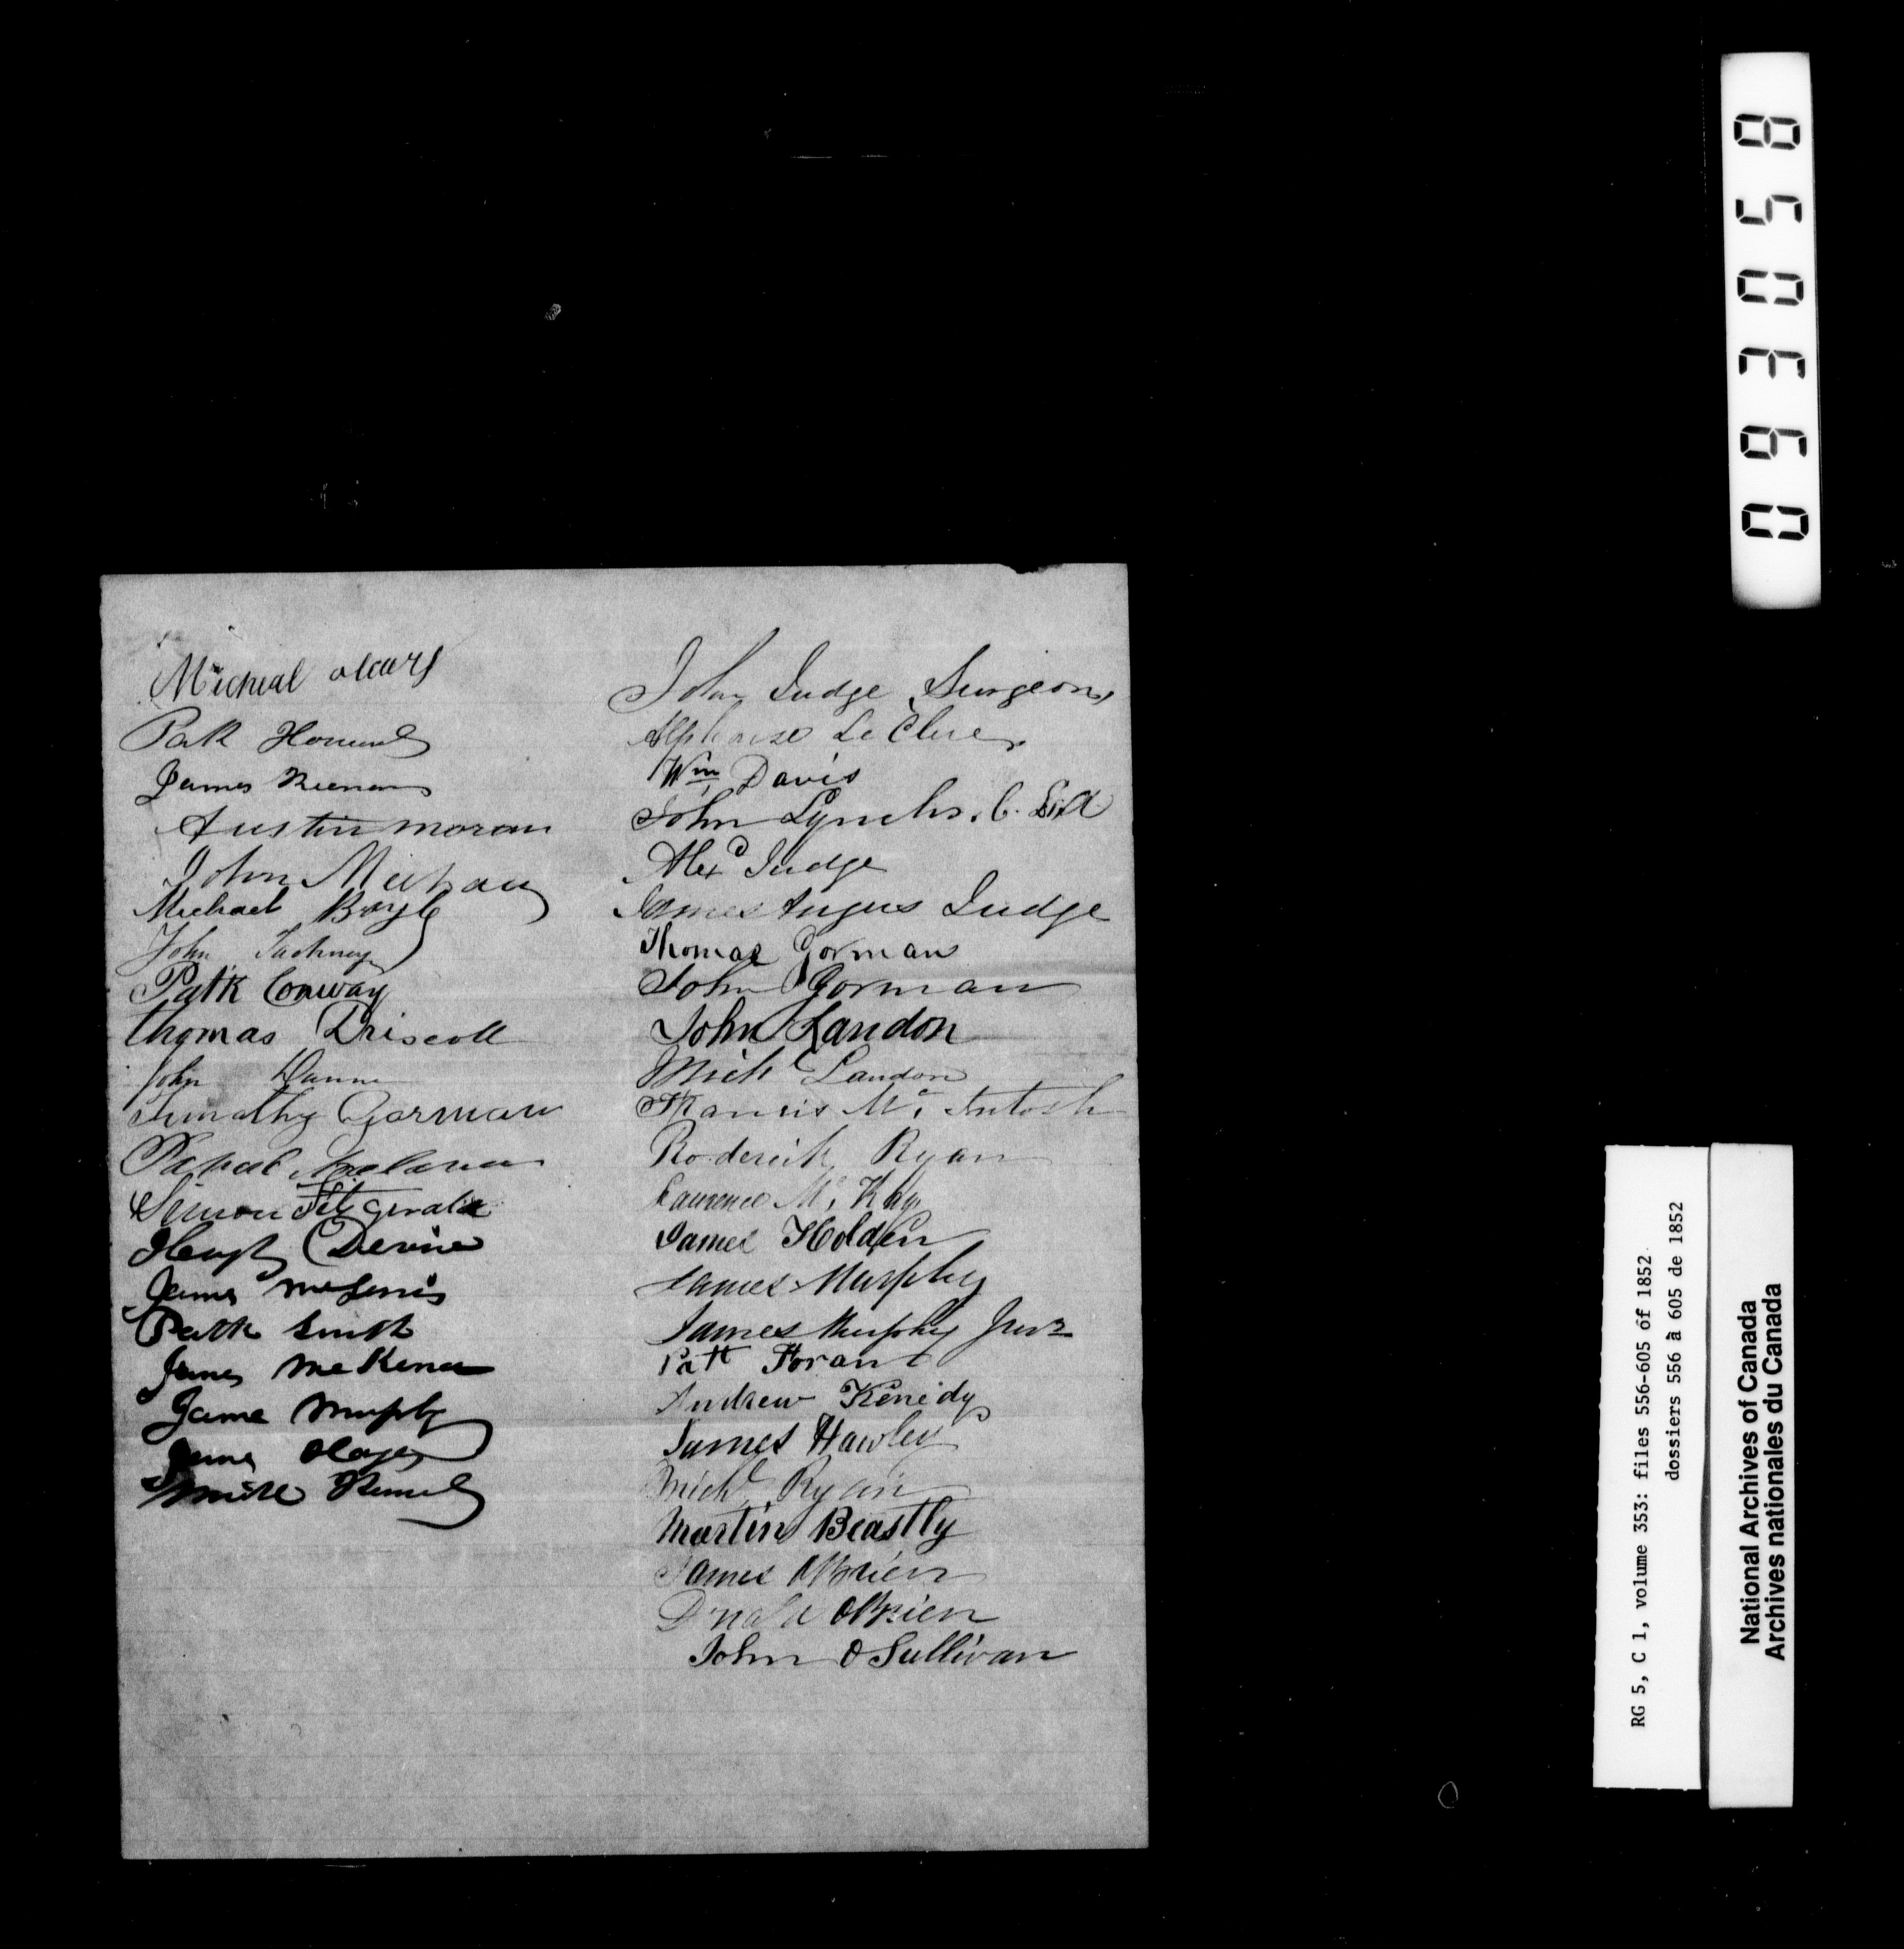 Micheal
Patk
James Keenan
Austin moran
John Meehan
Michael Boyle
John
Patk Conway
Thomas Driscoll
John Dunn
Timothy Gorman
Simon Fitzgerald
Hugh Devine
James
Patk Smith
James McKena
Jame Murphy
John Judge Surgeon
Alphonse Le Clere
Wm Davis
John Lynch. C.
Alexd Judge
James Angus Judge
Thomas Gorman
John Gorman
John Landon
Mich Landon
Francis Mc Intosh
Roderick Ryan
Laurence Mc Kay
James Holden
James Murphy
James Murphy Junr
Patt Foran
Andrew Kenedy
James Hawley
Michl Ryan
Martin Beastly
James OBrien
Dnald OBrien
John O Sullivan
0963058
RG 5, C 1, volume 353: files 556-605 of 1852
dossiers 556 à 605 de 1852
National Archives of Canada
Archives nationales du Canada